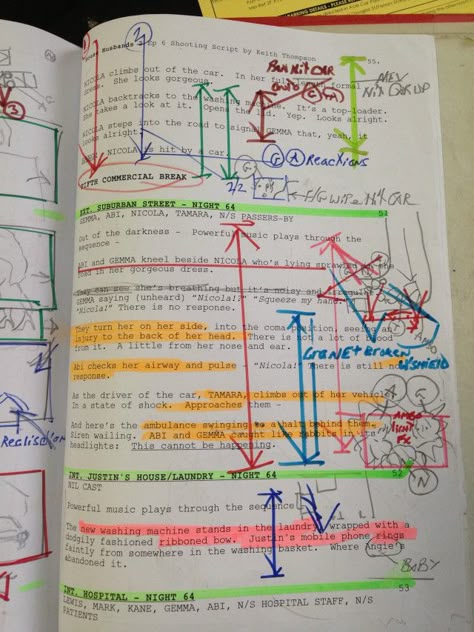 Husbands - Ep 6 Shooting Script by Keith Thompson
55.
NICOLA climbs out of the car. In her full formal
She looks gorgeous.
NICOLA backtracks to the washing machine. It's a top-loader.
She takes a look at it. Opens the lid. Yep. Looks alright.
NICOLA steps into the road to signal GEMMA that, yeah, it
looks alright
NICOLA is hit by a car
G A Reactions
FIFTH COMMERCIAL BREAK
2/2
F/G WIPE Nit CAR
EXT. SUBURBAN STREET - NIGHT 64
51
GEMMA, ABI, NICOLA, TAMARA, N/S PASSERS-BY
Out of the darkness - Powerful music plays through the
sequence -
ABI and GEMMA kneel beside NICOLA who's lying sprawled on the
road in her gorgeous dress.
They can see she's breathing but it's noisy and irregular.
GEMMA saying (unheard) "Nicola!" "Squeeze my hand."
"Nicola!" There is no response.
They turn her on her side, into the coma position, seeing an
injury to the back of her head. There is not a lot of blood
from it. A little from her nose and ear.
CRANE + broken
W'SHIELD
Abi checks her airway and pulse "Nicola!" There is still no
response.
As the driver of the car, TAMARA, climbs out of her vehicle
In a state of shock. Approaches them -
And here's the ambulance swinging to a halt behind them.
Siren wailing. ABI and GEMMA caught like rabbits in its
headlights: This cannot be happening.
AMBO
LIGHT
FX
Realisation
INT. JUSTIN'S HOUSE/LAUNDRY - NIGHT 64
52
NIL CAST
N
Powerful music plays through the sequence
The new washing machine stands in the laundry, wrapped with a
dodgily fashioned ribboned bow. Justin's mobile phone rings
faintly from somewhere in the washing basket. Where Angie's
abandoned it.
BABY
INT. HOSPITAL - NIGHT 64
53
LEWIS, MARK, KANE, GEMMA, ABI, N/S HOSPITAL STAFF, N/S
PATIENTS